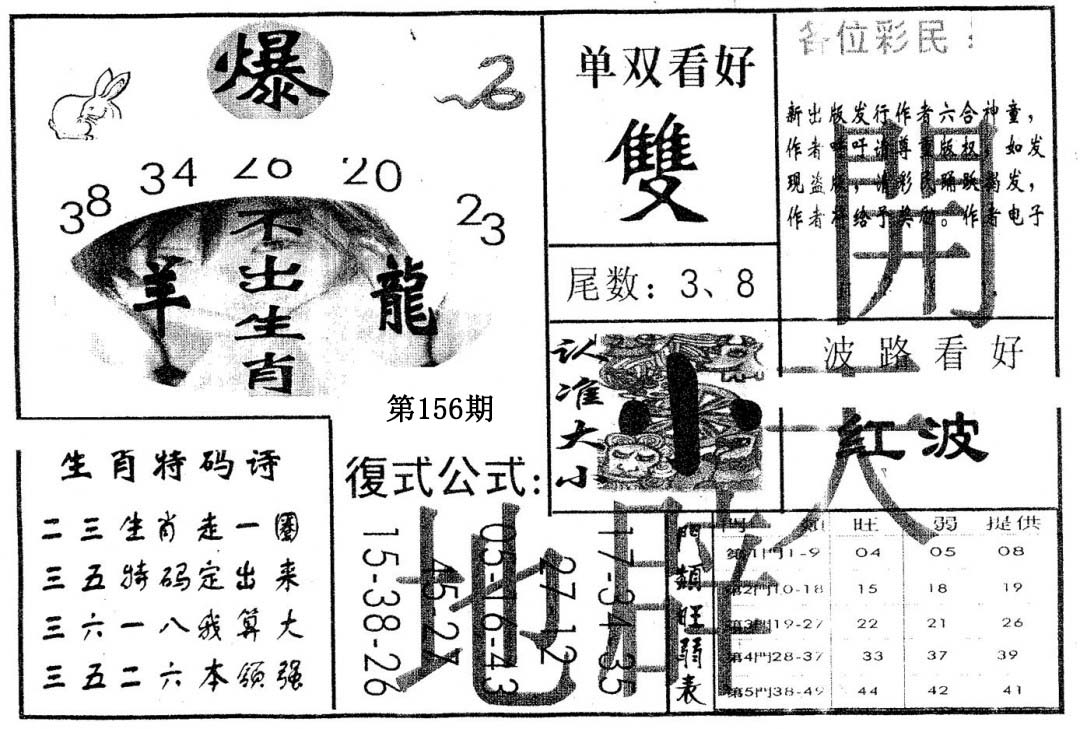 爆
38 34 26 20 23
不出生肖
羊
龍
第156期
单双看好
雙
尾数：3、8
各位彩民：
新出版发行作者六合神童，
作者呼吁请尊重版权，如发
现盗版，请彩民踊跃揭发，
作者将给予奖励。作者电子
開
天
地
认准大小
小
波路看好
红波
生肖特码诗
二三生肖走一圈
三五特码定出来
三六一八我算大
三五二六本领强
復式公式:
15-38-26
45-27
05-16-43
27-12
17-34-35
門類旺弱表
門類 旺 弱 提供
第1門1-9 04 05 08
第2門10-18 15 18 19
第3門19-27 22 21 26
第4門28-37 33 37 39
第5門38-49 44 42 41